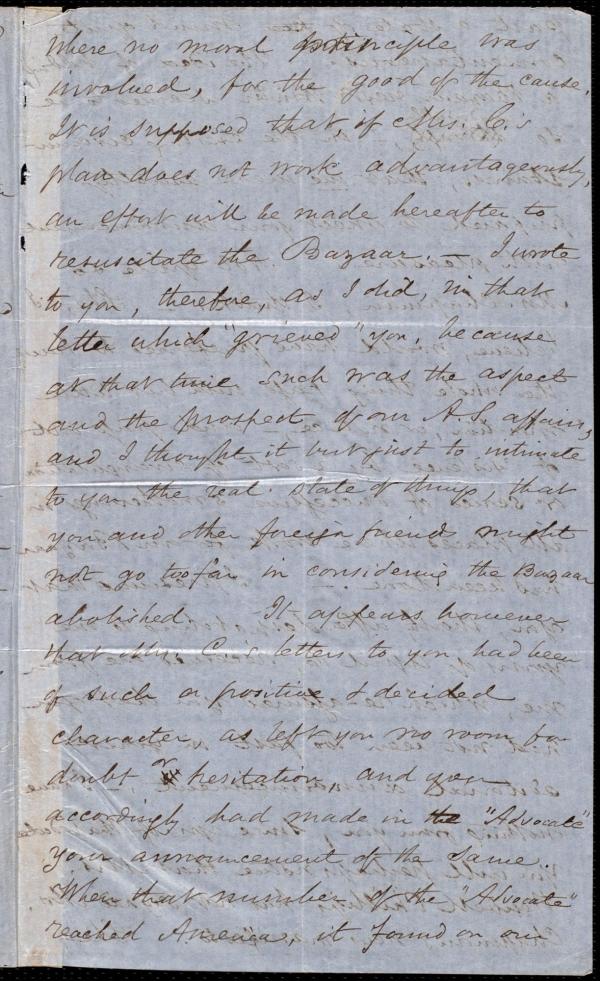 where no moral principle was
involved, for the good of the cause.
It is supposed that, if Mrs. C.'s
plan does not work advantageously,
an effort will be made hereafter to
resuscitate the Bazaar. – I wrote
to you, therefore, as I did, in that
letter which "grieved" you, because
at that time such was the aspect
and the prospect of our A.S. affairs,
and I thought it but just to intimate
to you the real state of things, that
you and other foreign friends might
not go too far in considering the Bazaar
abolished. It appears however
that Mrs. C.'s letters to you had been
of such a positive & decided
character, as left you no room for
doubt or hesitation, and you
accordingly had made in the "Advocate"
your announcement of the same.
When that number of the "Advocate"
reached America, it found on our